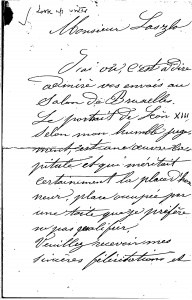 Monsieur Laszlo
J'ai vû, c'est à dire
admiré vos envois au
Salon de Bruxelles.
Le portrait de Léon XIII
selon mon humble juge-
ment, est une œuvre ca-
pitale et qui méritait
certainement la place d'hon-
neur, place occupée par
une toile que je préfère
ne pas qualifier.
Veuillez recevoir mes
sincères félicitations et